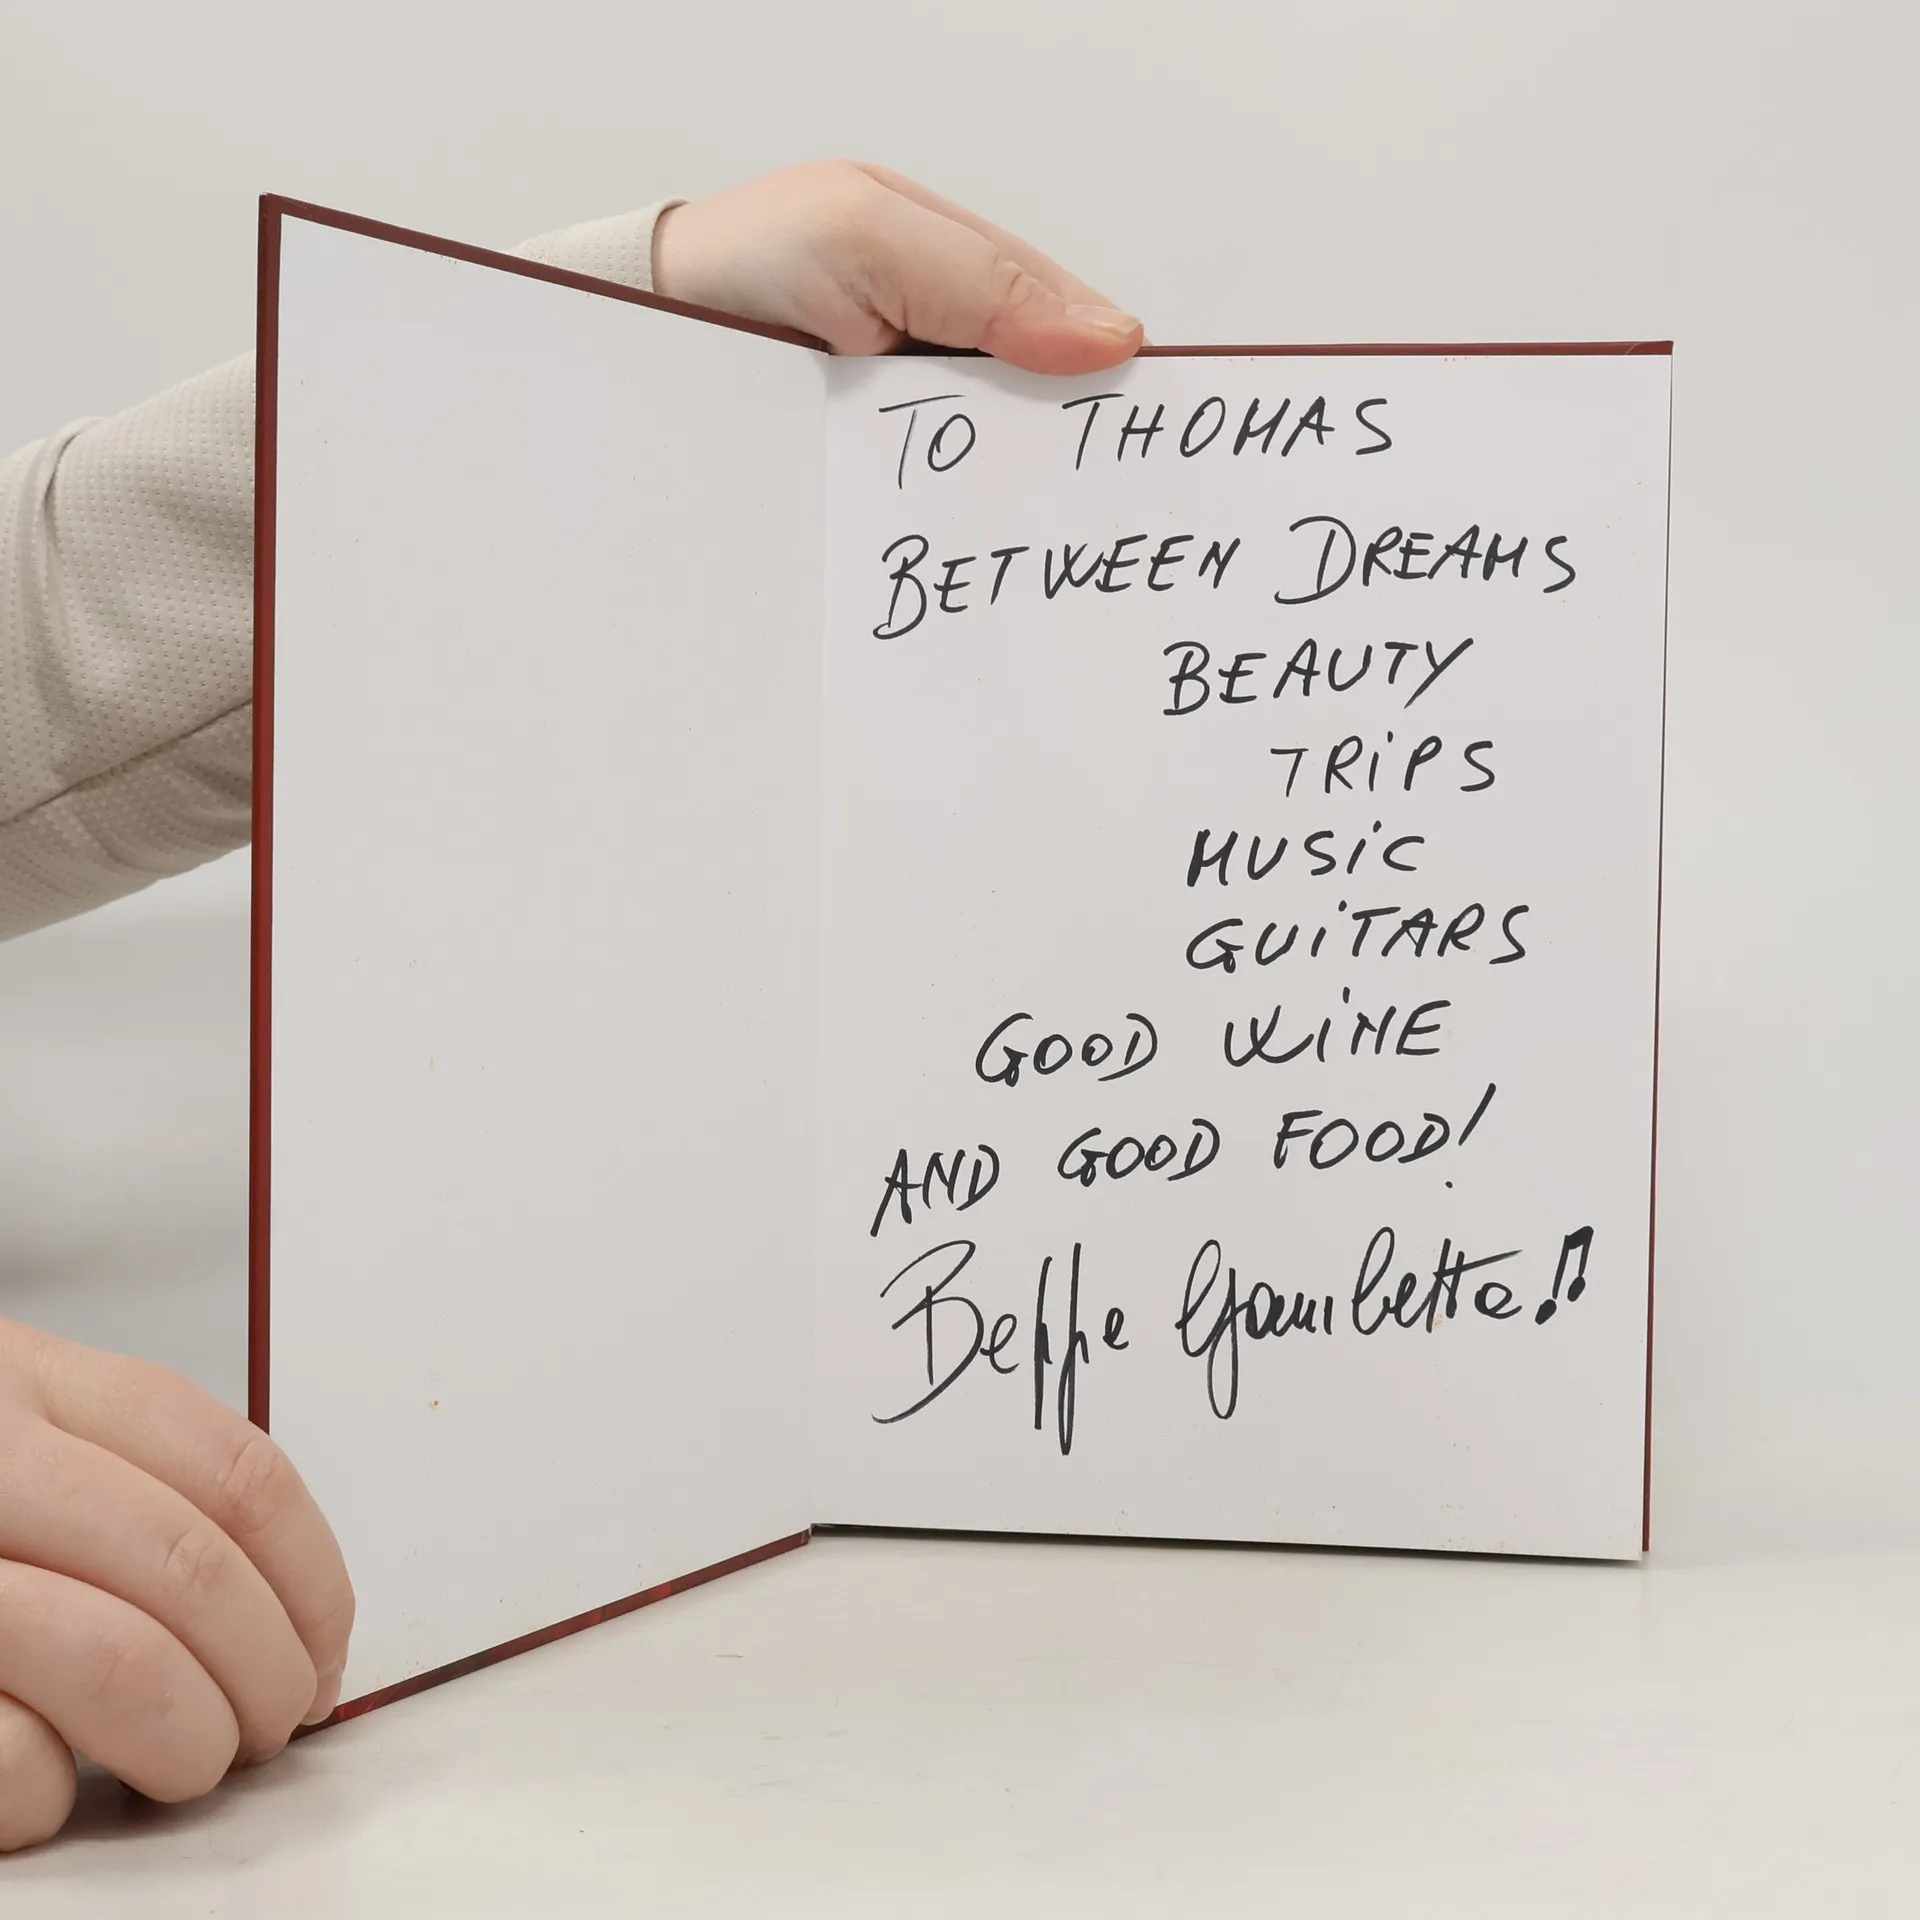 TO THOMAS
BETWEEN DREAMS
BEAUTY
TRiPS
MUSiC
GUiTARS
GOOD WiNE
AND GOOD FOOD!
Beppe Gambetta!